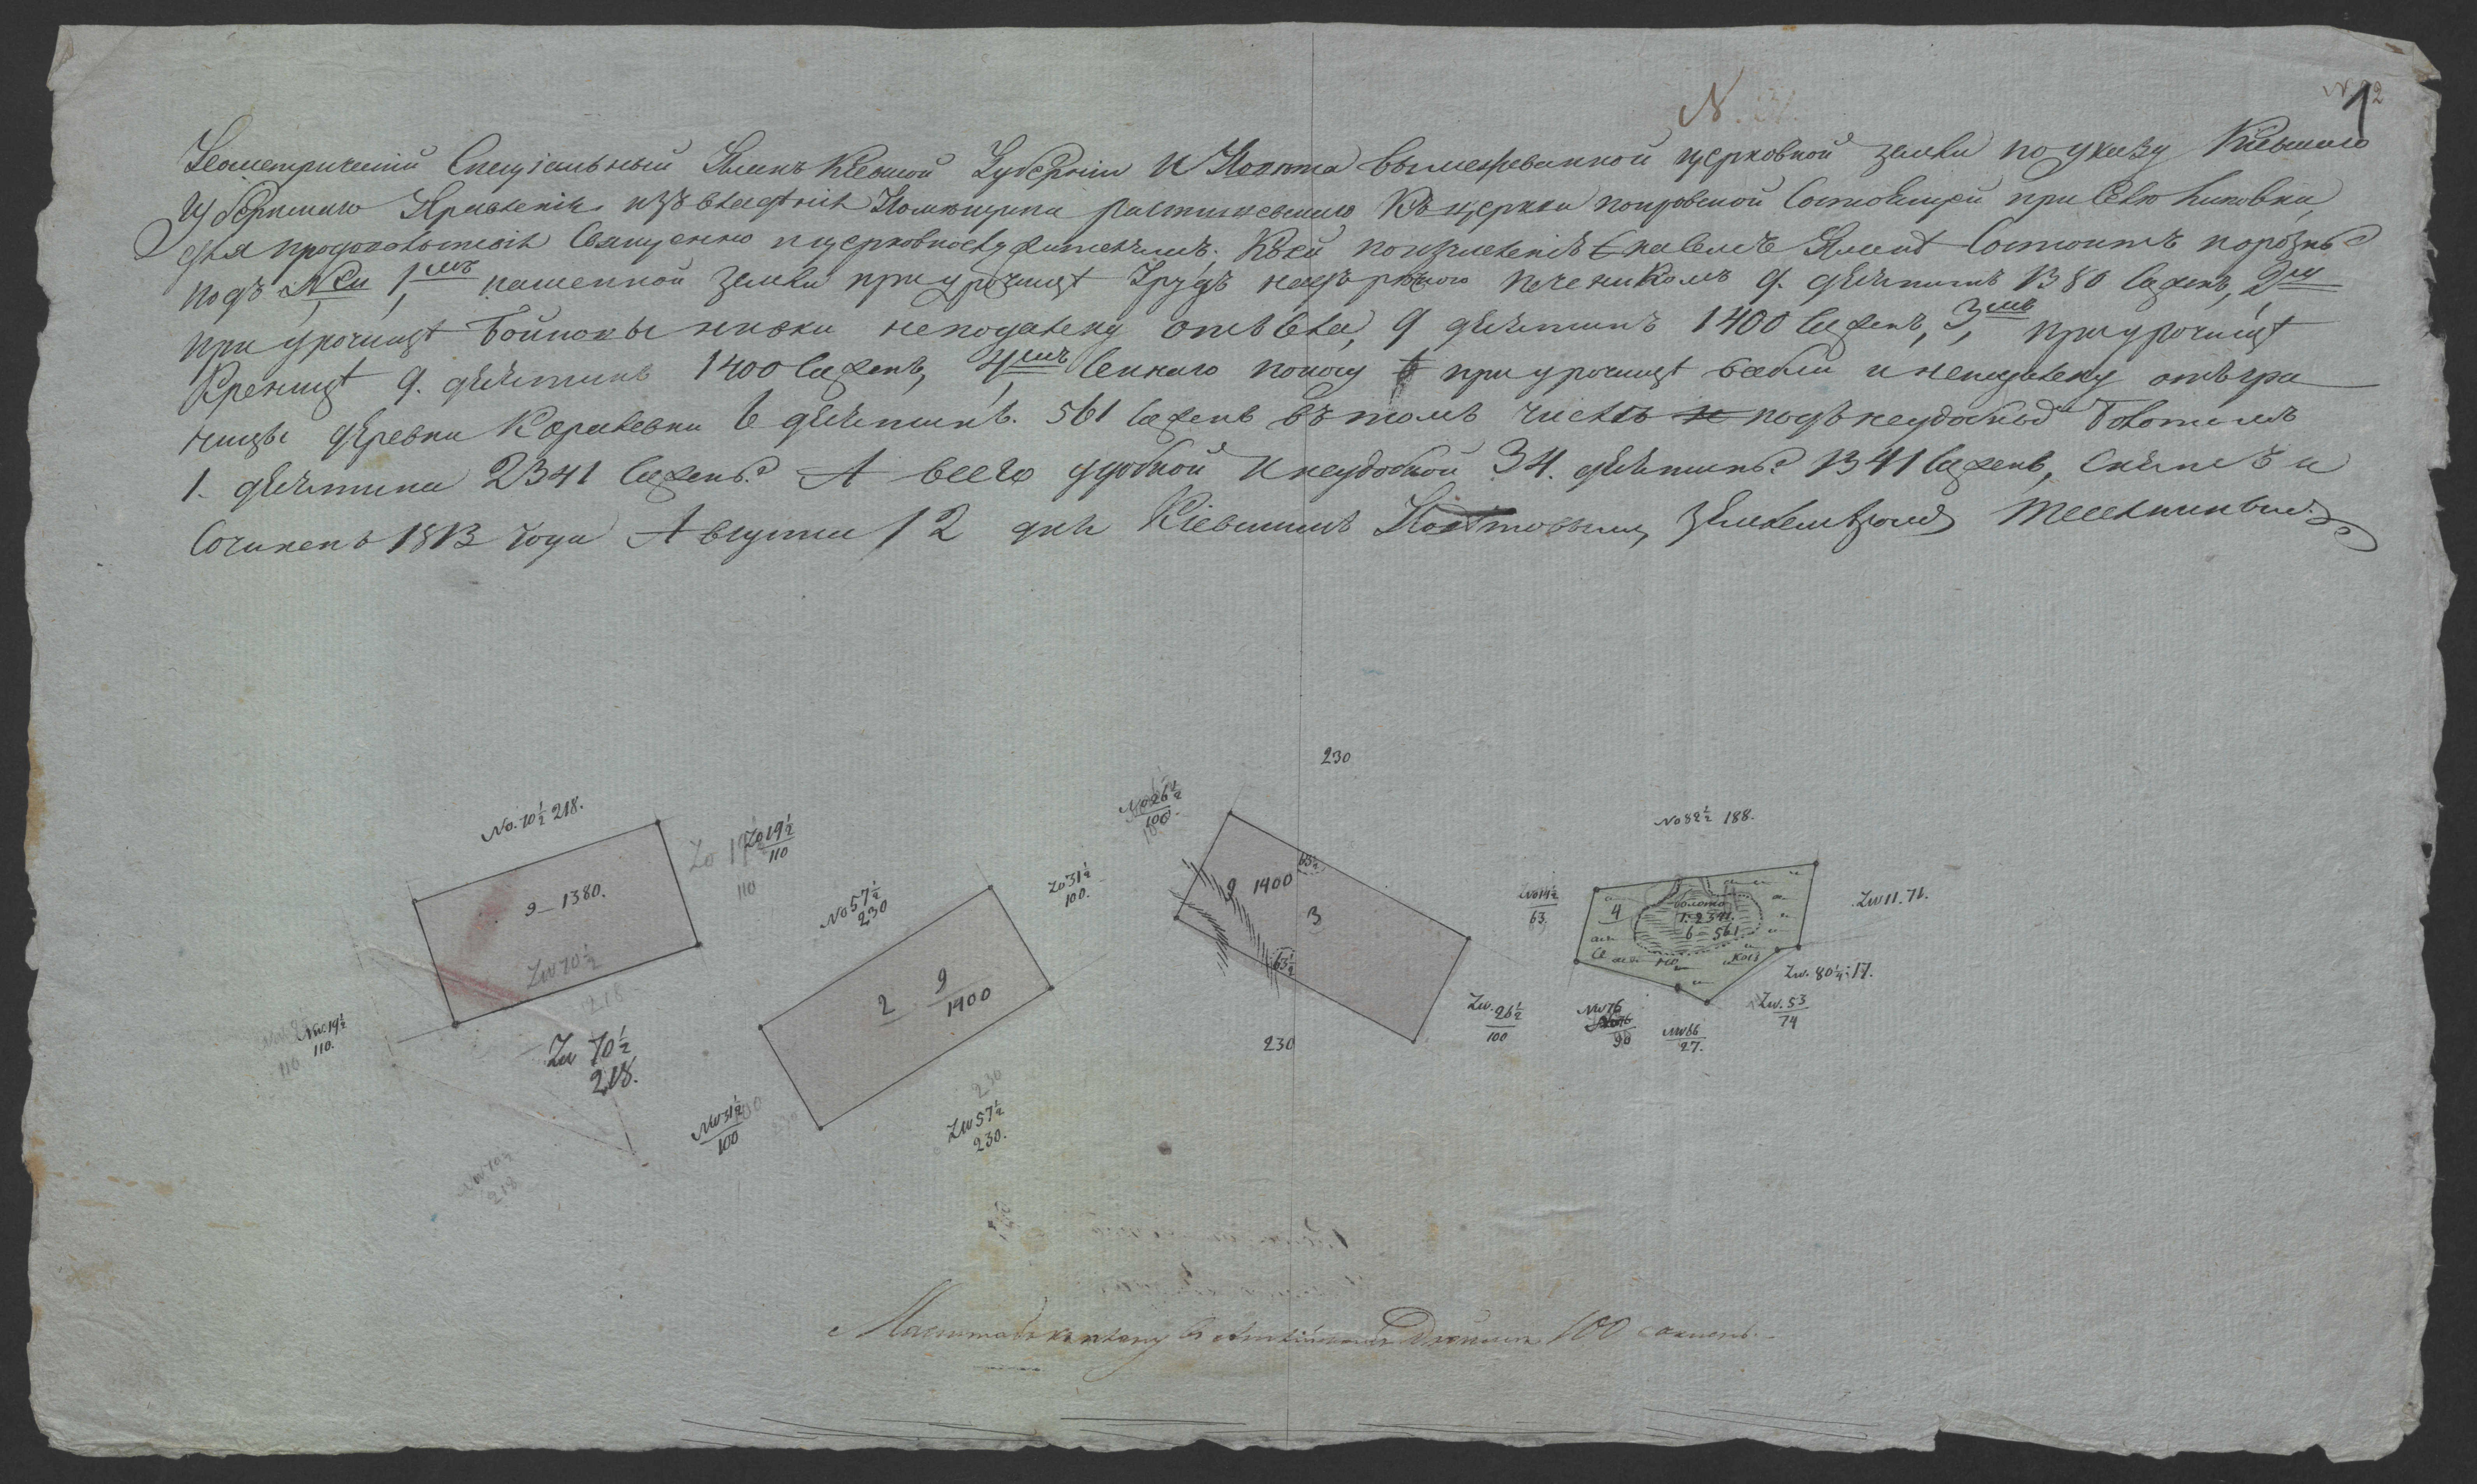 N. 31.
1
Геометрическій Спеціальный Планъ Кіевской Губерніи и Повѣта вымежеванной церковной земли по указу Кіевскаго
Губернскаго Правленія изъ владѣнія Помѣщика Ростишевскаго Къ церкви покровской Состоящей при Селѣ Липовки,
для продовольствія Священно и церковнослужителямъ. Въ коей по изчисленію на семъ Планѣ Состоитъ порознь
подъ №ми 1мъ пашенной земли при урочищѣ Грудъ надъ 9. десятинъ 1380 Сажень, 2мъ
при урочищѣ нивки неподалеку отъ Села, 9 десятинъ 1400 Сажень, 3мъ при урочищѣ
Креницѣ 9. десятинъ 1400 Сажень, 4мъ Сеннаго покосу при урочищѣ и неподалеку отъ гра
ницы деревни Королевки 6 десятинъ. 561 Сажень въ томъ числѣ подъ неудобной Болотомъ
1. десятина 2341 Сажень. А всего удобной и неудобной 34. десятины 1341 Сажень, Снятъ и
Сочиненъ 1813 года Августа 12 дня Кіевскимъ Повѣтовымъ Землемѣромъ
230
No. 70½ 218.
Zo 19½
110
9 — 1380.
Zw 70½
218
Nw. 19½
110.
Zw 70½
218.
Nw 70½
218
No 57½
230
Zo 31½
100.
2 9
1400
Nw 31½
100
Zw 57½
230.
No 26½
100.
9 1400
3
63½
63½
230
Zw. 26½
100
No 82½ 188.
No 14½
63.
4
болото
1. 2341.
6 — 561
Се но кось
Zw 11. 71.
Zw. 80¼ 17.
Zw. 53
74
Nw 76
90
Nw 66
27.
Масштабъ къ плану въ Англійскомъ Дюймѣ 100 сажень.